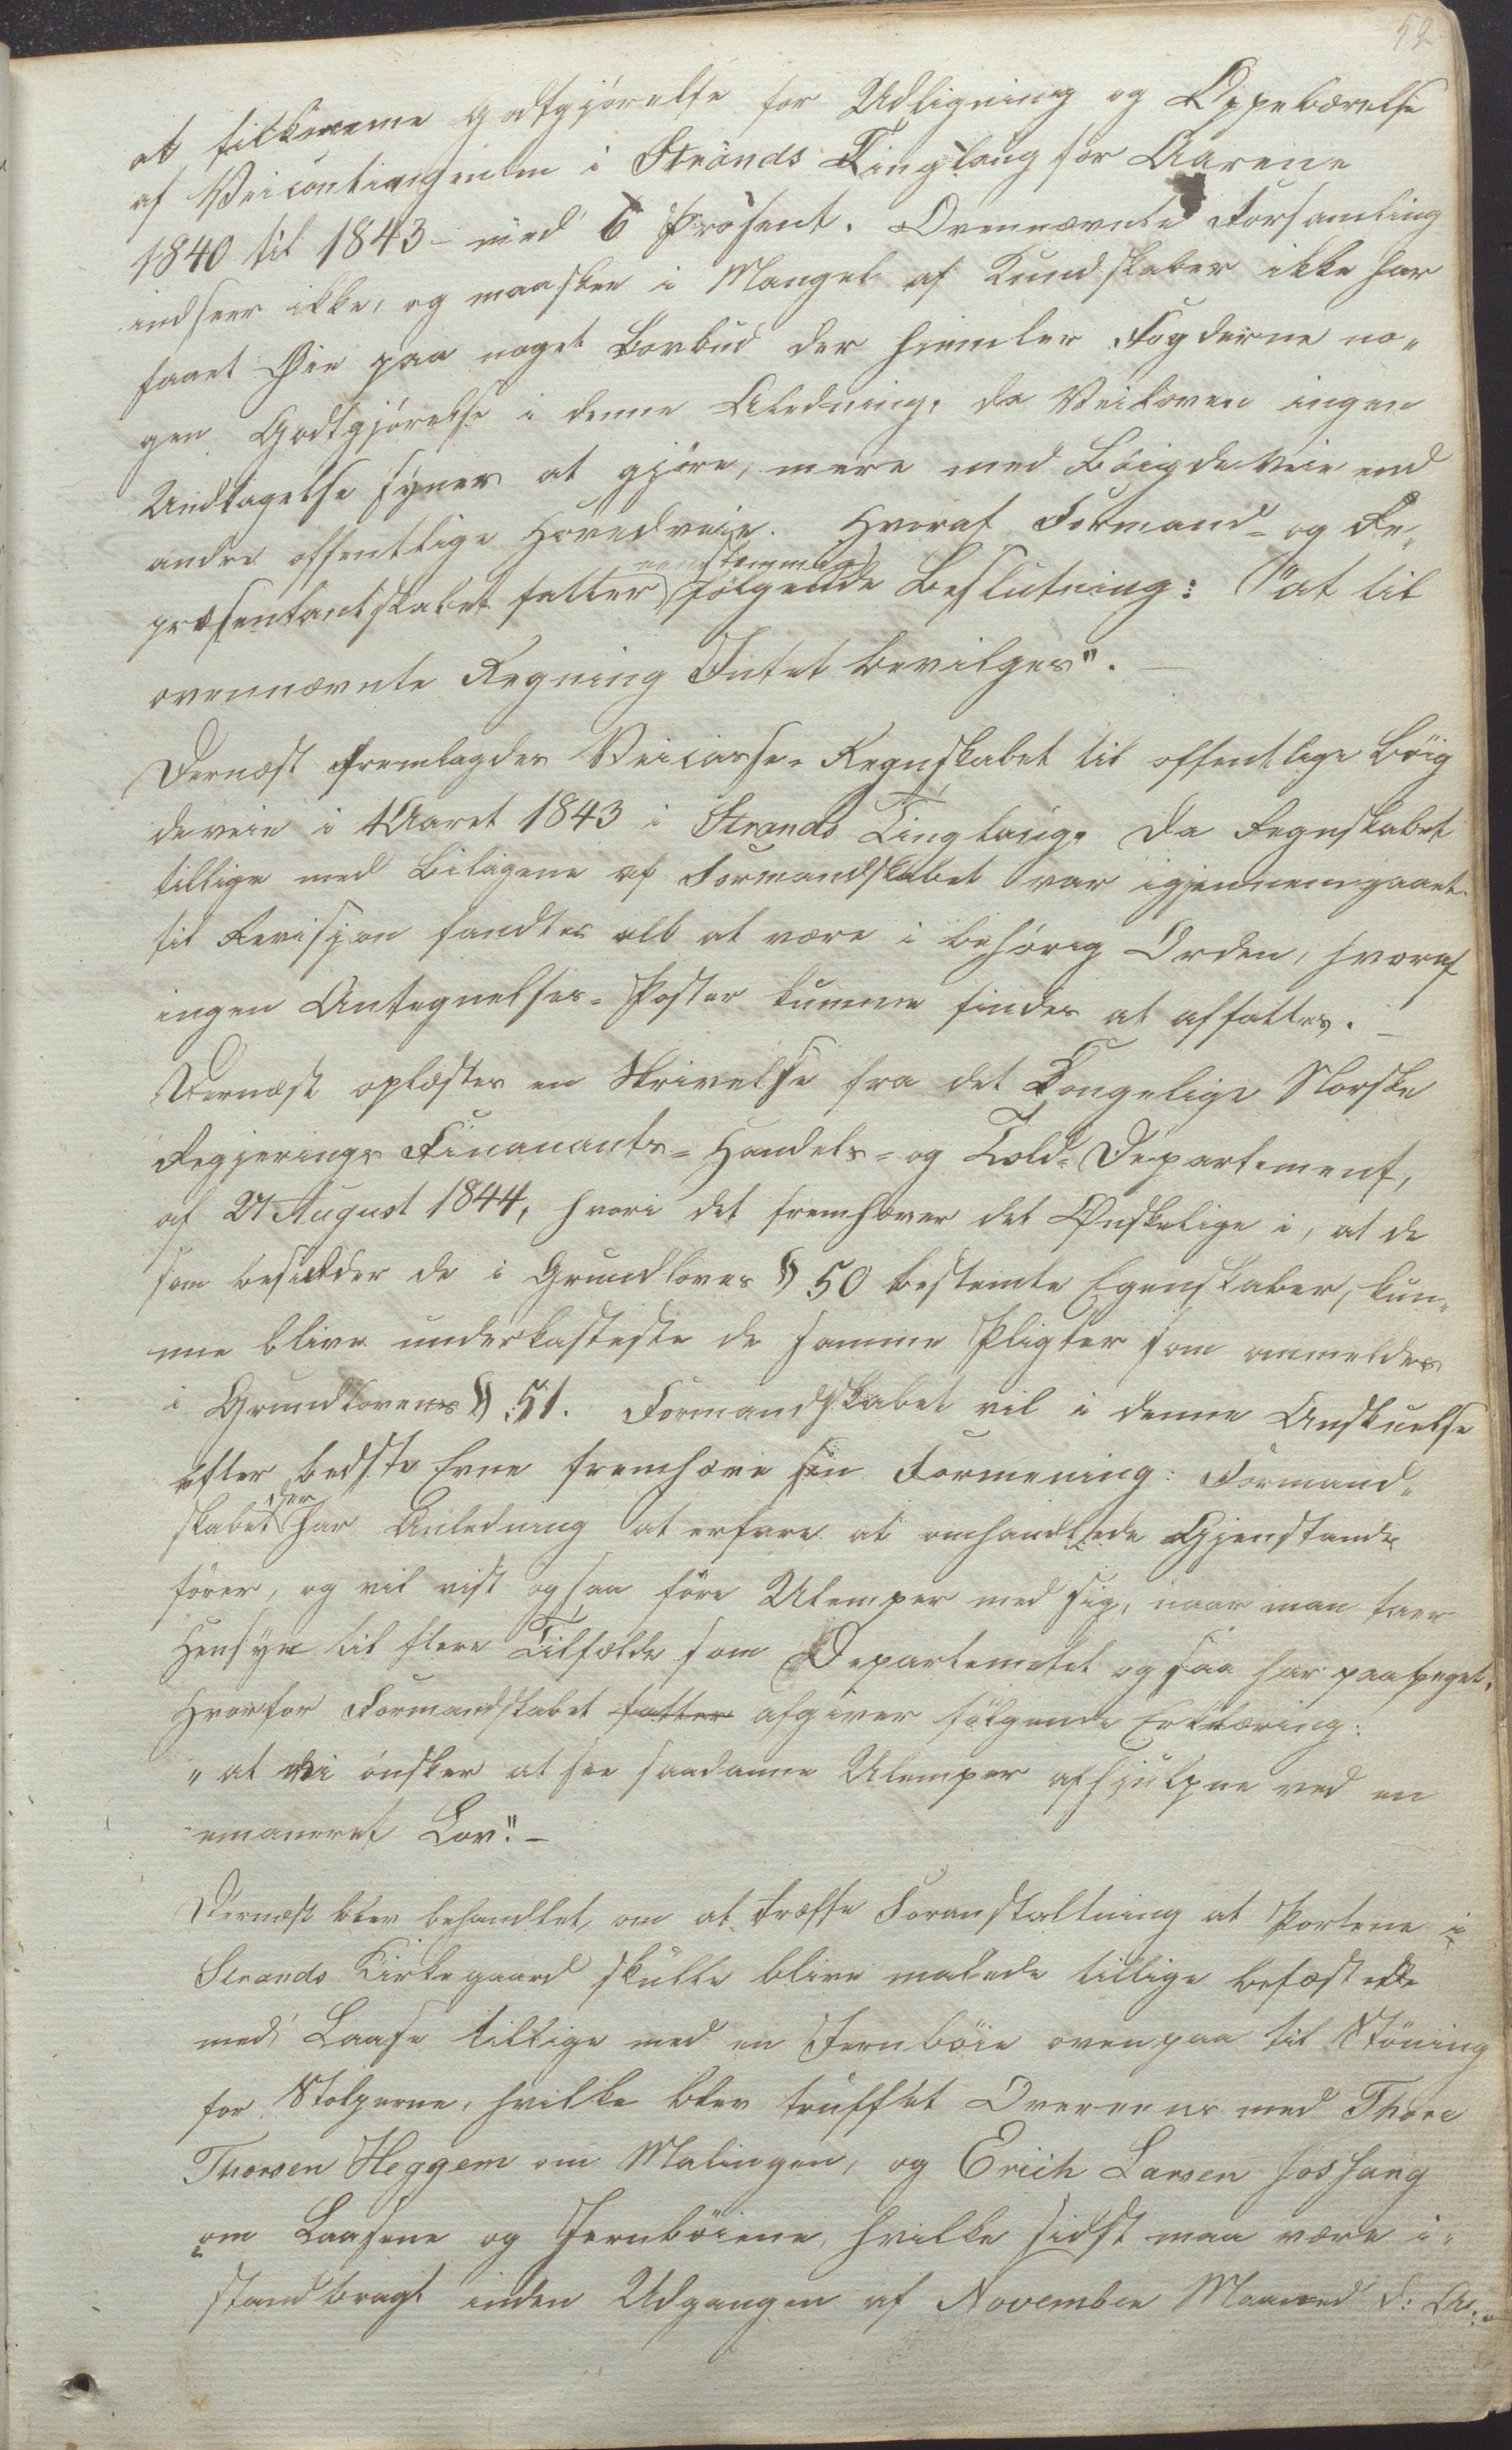 52
at tilkomme Godtgjørelse for Udligning og Oppebærelse
af Veicontingenten i Strands Tinglaug for Aarene
1840 til 1843 - med 6 Prosent. Ovennævnte Forsamling
indseer ikke, og maaskee i Mangel af Kundskaber ikke har
faaet Øie paa noget Lovbud der hjemler Fogderne no„
gen Godtgjørelse i denne Aledning, da Veiloven ingen
Undtagelse synes at gjöre, mere med Böigdeveie end
andre offentlige Hovedveie. Hvoraf Formand- og Re„
eenstemmig
præsentantskabet fatter følgende Beslutning: "at til
ovennævnte Regning Intet bevilges". —
Dernæst fremlagdes Veicasse-Regnskabet til offentlige Böig
deveie i Aaret 1843 i Strands Tinglaug. Da Regnskabet
tillige med Bilagene af Formandskabet var igjennemgaaet
til Revisjon fandtes alt at være i behörig Orden, hvoraf
ingen Antegnelses-Poster kunne findes at affattes. —
Dernæst oplæstes en Skrivelse fra det Kongelige Norske
Regjerings Finanants-Handels- og Told-Departement,
af 27 August 1844, hvori det fremhæver det Ønskelige i, at de
som besidder de i Grundloves § 50 bestemte Egenskaber, kun„
ne blive underkasteste de samme Pligter som ommeldes
i Grundlovens § 51. Formandskabet vil i denne Anskuelse
efter bedste Evne fremhæve sin Formening: Formand„
der
skabet har Anledning at erfare at omhandlede Gjenstande
fører, og vil vist ogsaa føre Ulemper med sig, naar man taer
Hensyn til flere Tilfælde som Departemetet ogsaa har paapeget.
Hvorfor Formandskabet fatter afgiver følgende Erklæring:
„at vi ønsker at see saadanne Ulemper afhjulpne ved en
emaneret Lov". —
Dernæst blev behandlet, om at træffe Foranstaltning at Portene i
Strands Kirkegaard skulle blive malede tillige befæstede
med Laase tillige med en Jernböie ovenpaa til Stöning
for Stolperne, hvilke blev truffet Overeens med Thore
Thorsen Heggem om Malingen, og Erich Larsen Joshang
om Laasene og Jernböiene, hvilke sidst maa være i„
standbragt inden Udgangen af November Maaned d: A: -